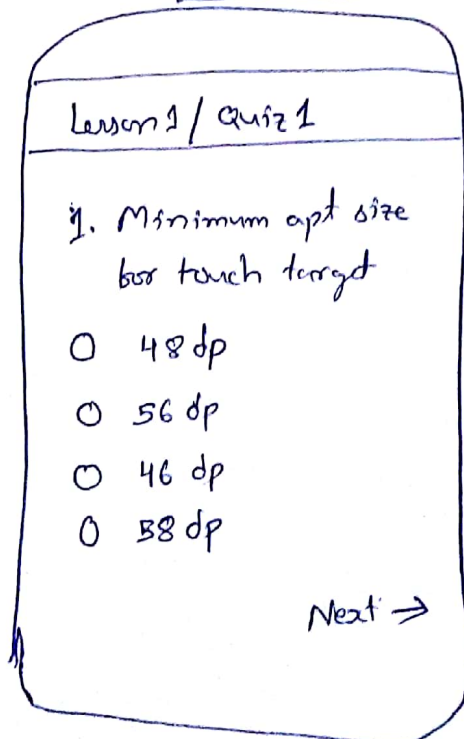 Lesson 1 / Quiz 1
1. Minimum apt size
for touch target
48 dp
56 dp
46 dp
58 dp
Next →